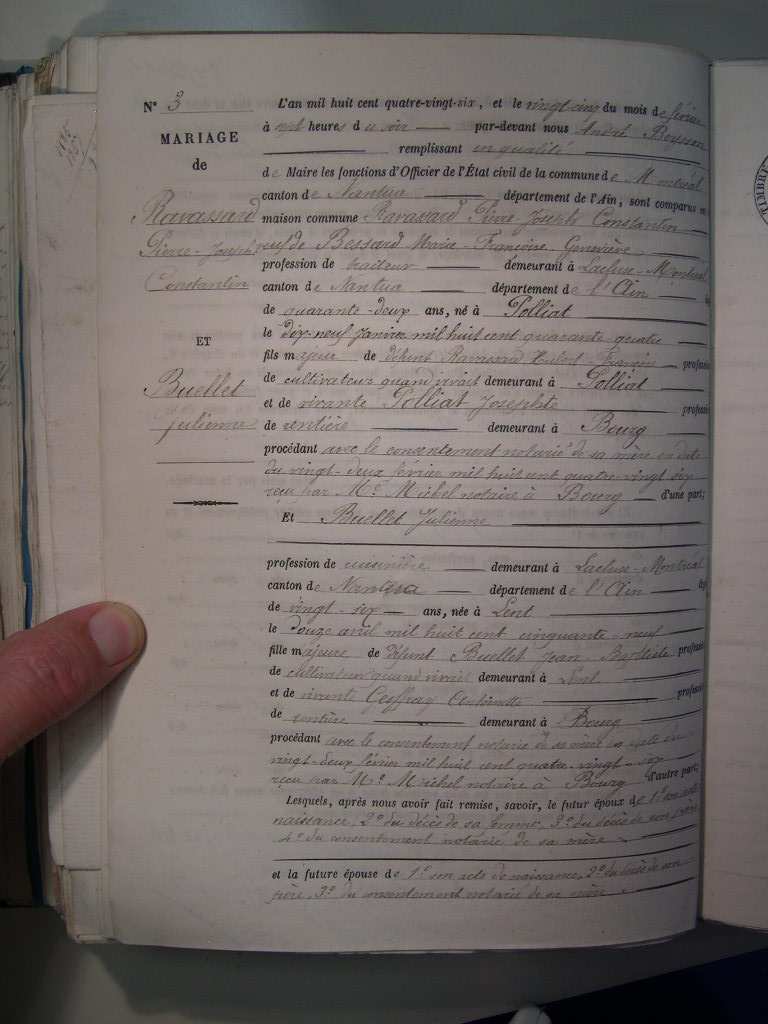 N° 3
MARIAGE
de
Ravassard
Pierre-Joseph
Constantin
ET
Buellet
Julienne
L'an mil huit cent quatre-vingt-six, et le vingt-cinq du mois de février
à heures du soir par-devant nous André
remplissant en qualité
de Maire les fonctions d'Officier de l'État civil de la commune de Montréal
canton de Nantua département de l'Ain, sont comparus en
maison commune Ravassard Pierre Joseph Constantin
veuf de Bessard Marie-Françoise-Geneviève
profession de traiteur demeurant à Lacluse-Montréal
canton de Nantua département de l'Ain
de quarante-deux ans, né à Polliat
le dix-neuf Janvier mil huit cent quarante-quatre
fils majeur de défunt Ravassard François profession
de cultivateur quand vivait demeurant à Polliat
et de vivante Polliat Josephte profession
de rentière demeurant à Bourg
procédant avec le consentement notarié de sa mère en date
du vingt-deux février mil huit cent quatre-vingt six
reçu par Me Michel notaire à Bourg d'une part;
Et Buellet Julienne
profession de cuisinière demeurant à Lacluse-Montréal
canton de Nantua département de l'Ain
de vingt-six ans, née à Lent
le douze avril mil huit cent cinquante-neuf
fille majeure de défunt Buellet Jean Baptiste profession
de cultivateur quand vivait demeurant à Lent
et de vivante profession
de rentière demeurant à Bourg
procédant avec le consentement notarié de sa mère en date du
vingt-deux février mil huit cent quatre-vingt-six
reçu par Me Michel notaire à Bourg d'autre part;
Lesquels, après nous avoir fait remise, savoir, le futur époux de 1° son acte
naissance, 2° du décès de sa femme, 3° du décès de son père
4° du consentement notarié de sa mère
et la future épouse de 1° son acte de naissance, 2° du décès de son
père, 3° du consentement notarié de sa mère
TIMBRE